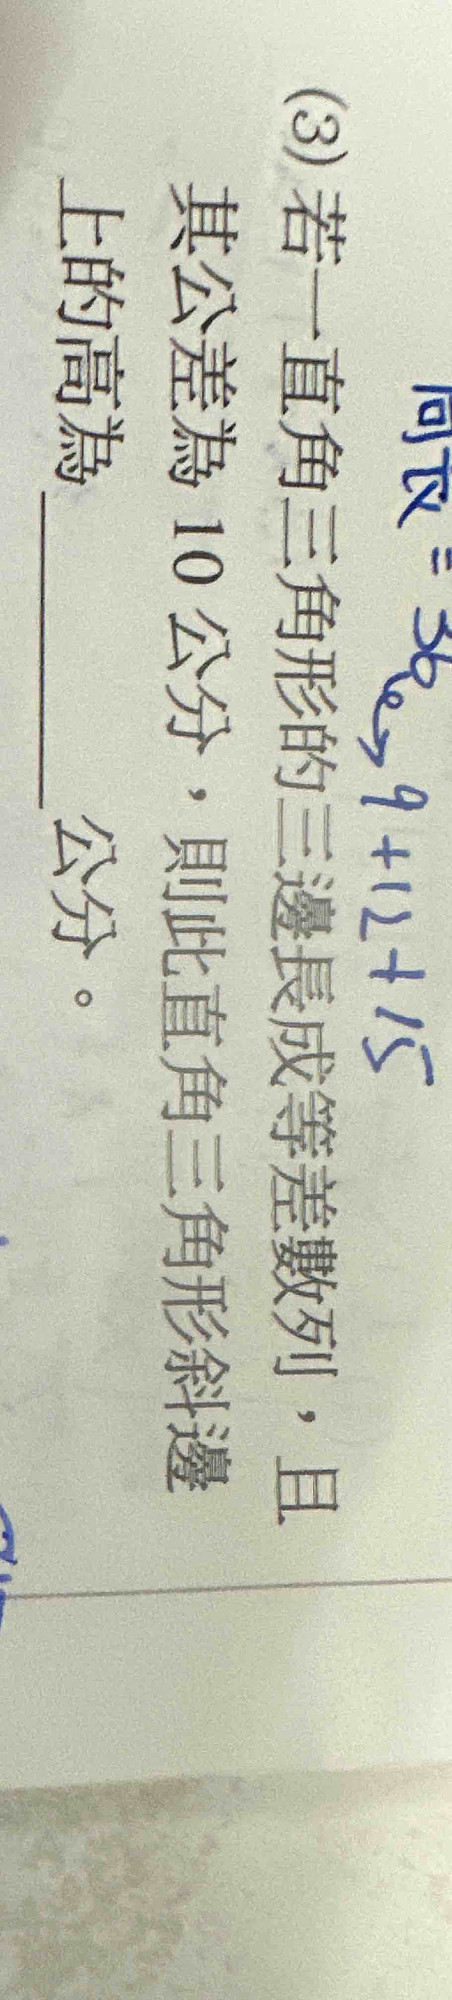 周長=36→9+12+15
(3) 若一直角三角形的三邊長成等差數列，且
其公差為 10 公分，則此直角三角形斜邊
上的高為______公分。